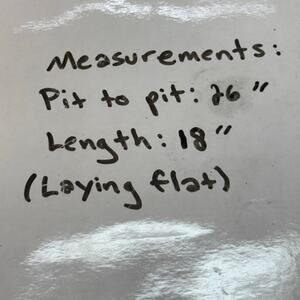 Measurements:
Pit to pit: 26"
Length: 18"
(Laying flat)